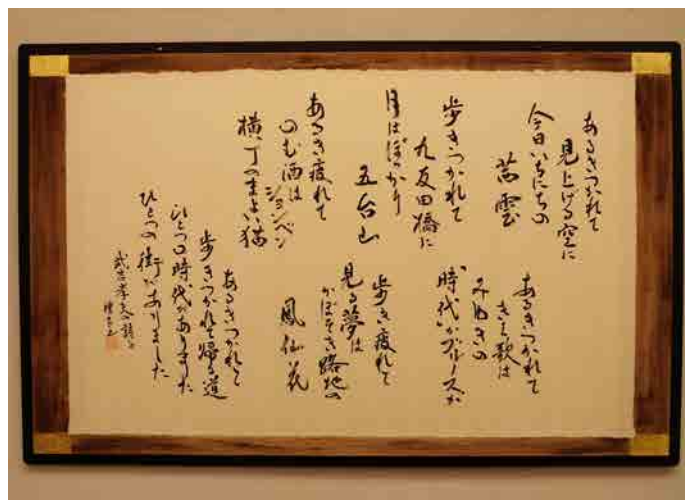 あるきつかれて
見上げる空に
今日いちにちの
茜雲
歩きつかれて
九反田橋に
月はぽっかり
五台山
あるき疲れて
のむ酒は
ションベン
横丁のまよい猫
あるきつかれて
きく歌は
みゆきの
時代かブルースか
歩き疲れて
見る夢は
かぼそき路地の
鳳仙花
あるきつかれて
歩きつかれて帰る道
ひとつの時代がありました
ひとつの街がありました
武吉孝夫